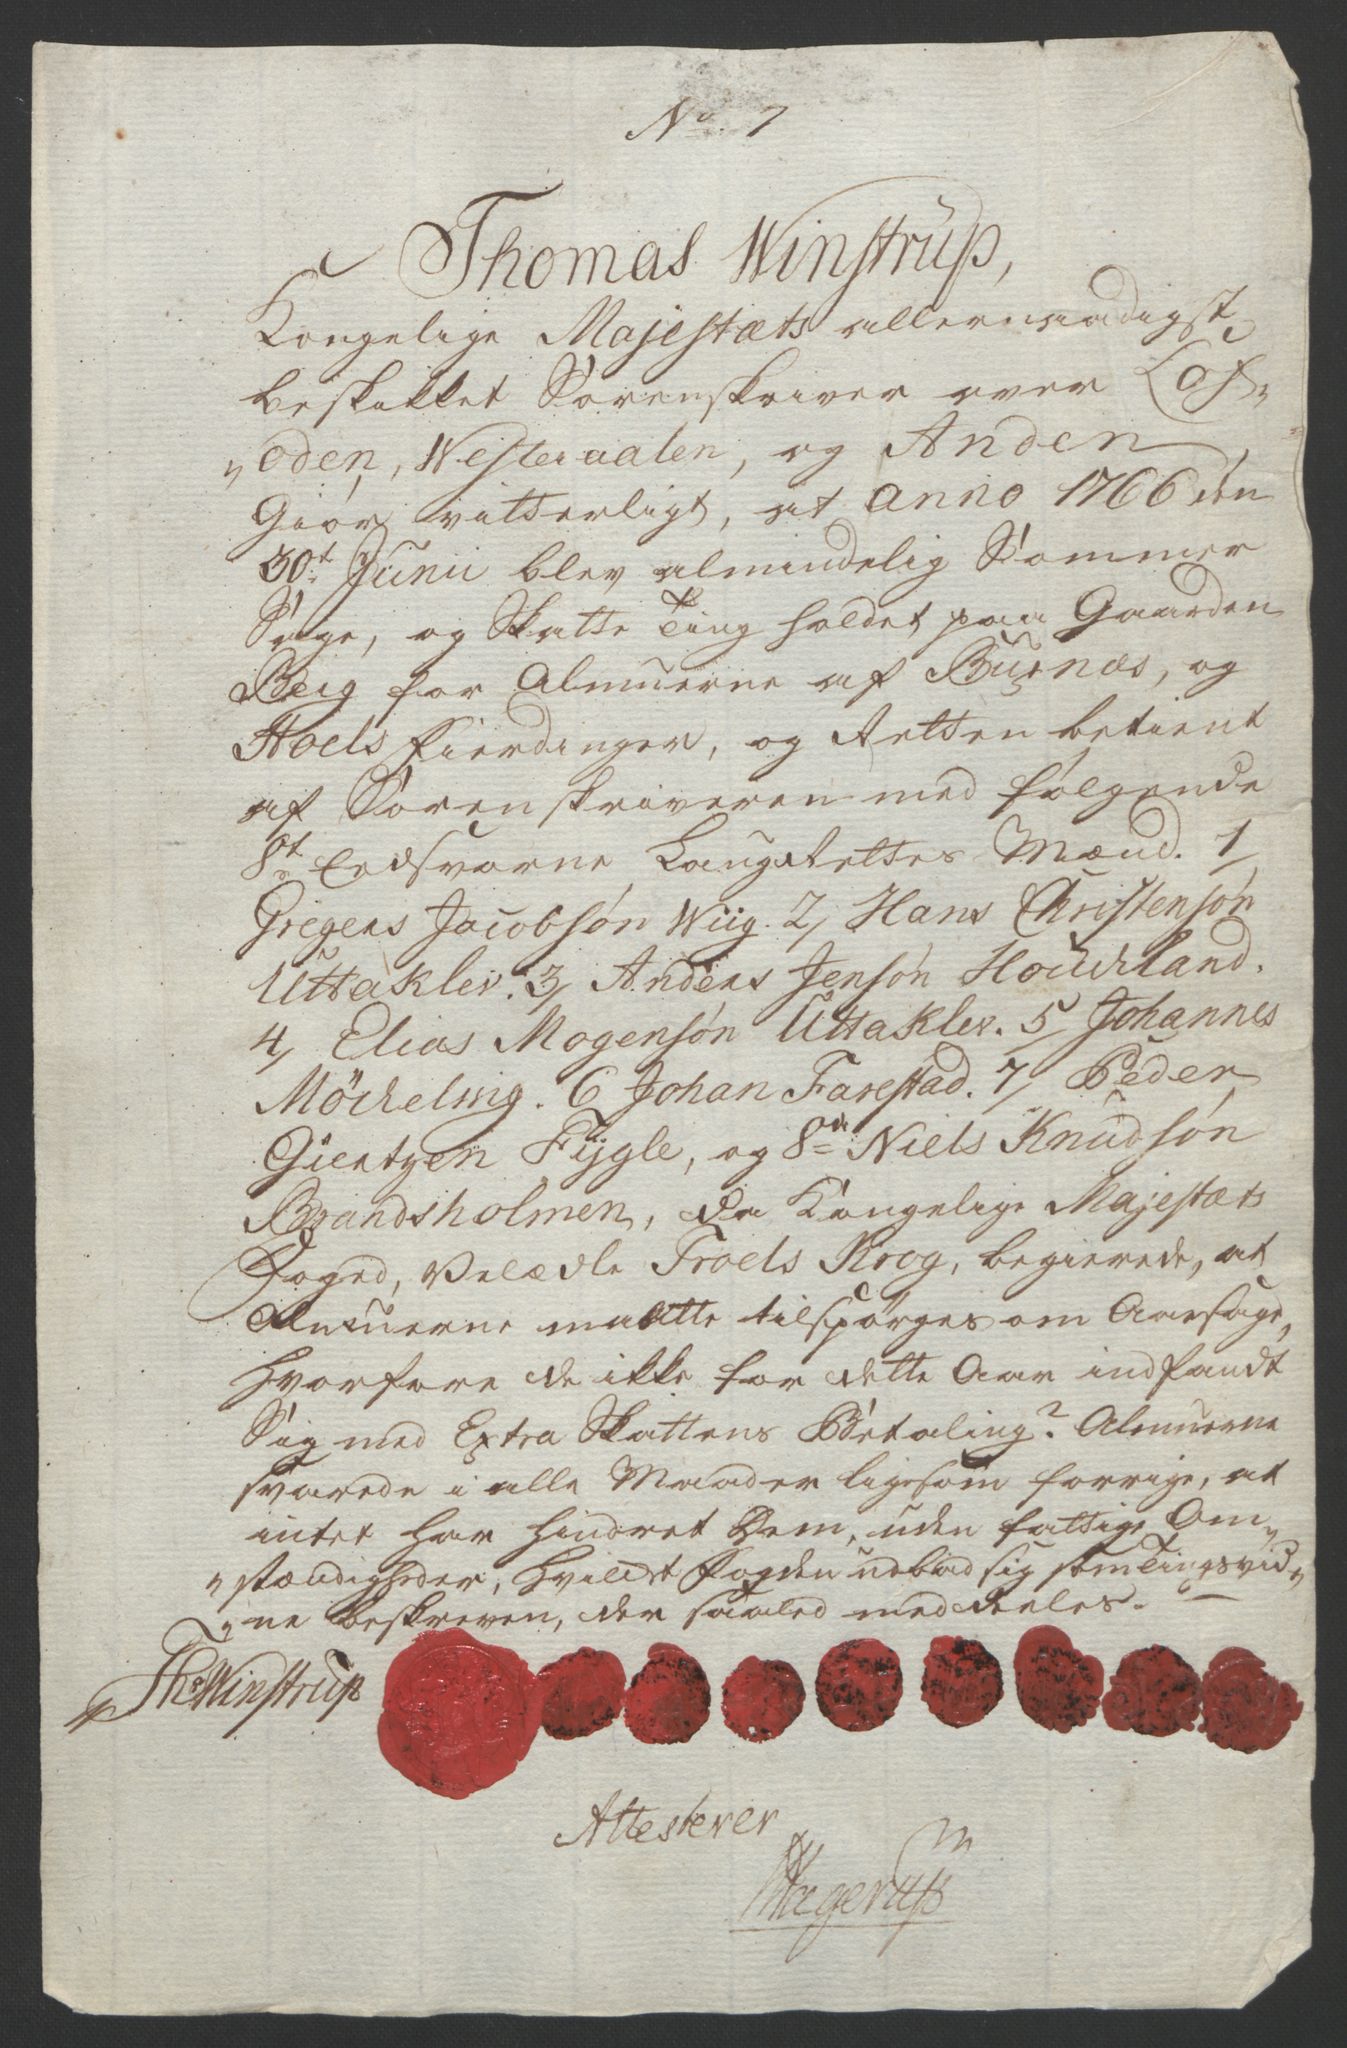 No. 7
Thomas Winstrup,
Kongelige Majestæts allernaadigst
beskikket Sorenskriver over Lof-
oden, Westeraalen, og Anden
Giør vitterligt, at anno 1766 den
30t Junii blev almindelig Sommer
Sage, og Skatte Ting holdet paa Gaarden
Berg for Almuerne af Buxnæs, og
Hoels Fierdinger, og Retten betient
af Sorenskriveren med følgende
8t Eedsvorne Laugrettes Mænd. 1/
Gregers Jacobsøn Wiig. 2/ Hans Christensøn
Uttaklev. 3/ Anders Jensøn Houchland.
4/ Elias Mogensøn Uttaklev. 5/ Johannes
Mörchelwiig. 6 Johan Farestad. 7/ Peder
Giertzen Fygle, og 8de Niels Knudsøn
Brandsholmen, da Kongelige Majestæts
Foged, Velædle Troels Krog, begierede, at
Almuerne maatte tilspørges om Aarsage,
hvorfore de ikke for dette Aar indfandt
Sig med Extra Skattens Betaling? Almuerne
svarede i alle Maader ligesom forrige, at
intet har hindret Dem, uden fattige Om-
stændigheder, hvilket Fogden udbad sig som Tingsvid-
ne beskreven, der saaled meddeeles.
Ths Winstrup
Attesterer
Hagerup